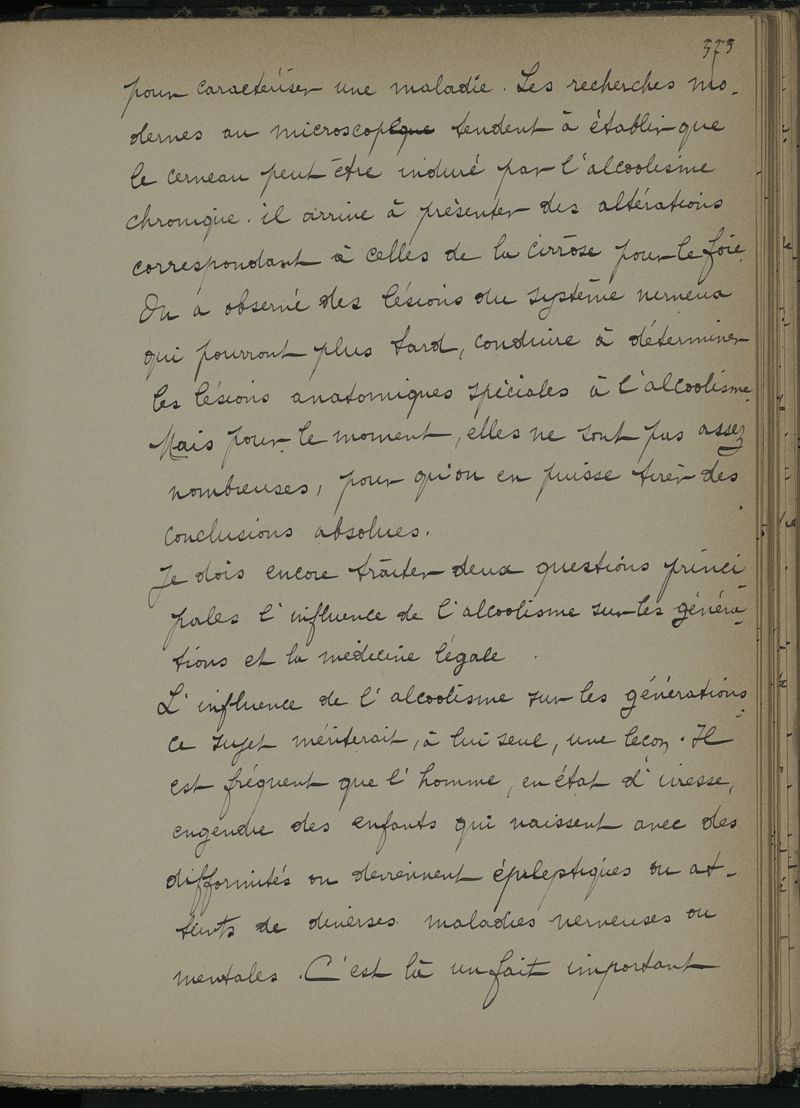 373
pour caractériser une maladie. Les recherches mo-
dernes au microscope tendent à établir que
le cerveau peut être induré par l'alcoolisme
chronique. il arrive à présenter des altérations
correspondant à celles de la cirrose pour le foie.
On a observé des lésions du système nerveux
qui pourront plus tard, conduire à déterminer
les lésions anatomiques spéciales à l'alcoolisme.
Mais pour le moment, elles ne sont pas assez
nombreuses, pour qu'on en puisse tirer des
conclusions absolues.
Je dois encore traiter deux questions princi-
pales l'influence de l'alcoolisme sur les généra-
tions et la médecine légale.
L'influence de l'alcoolisme sur les générations
ce sujet mériterait, à lui seul, une leçon. Il
est fréquent que l'homme, en état d'ivresse,
engendre des enfants qui naissent avec des
difformités ou deviennent épileptiques ou at-
teints de diverses maladies nerveuses ou
mentales. C'est là un fait important